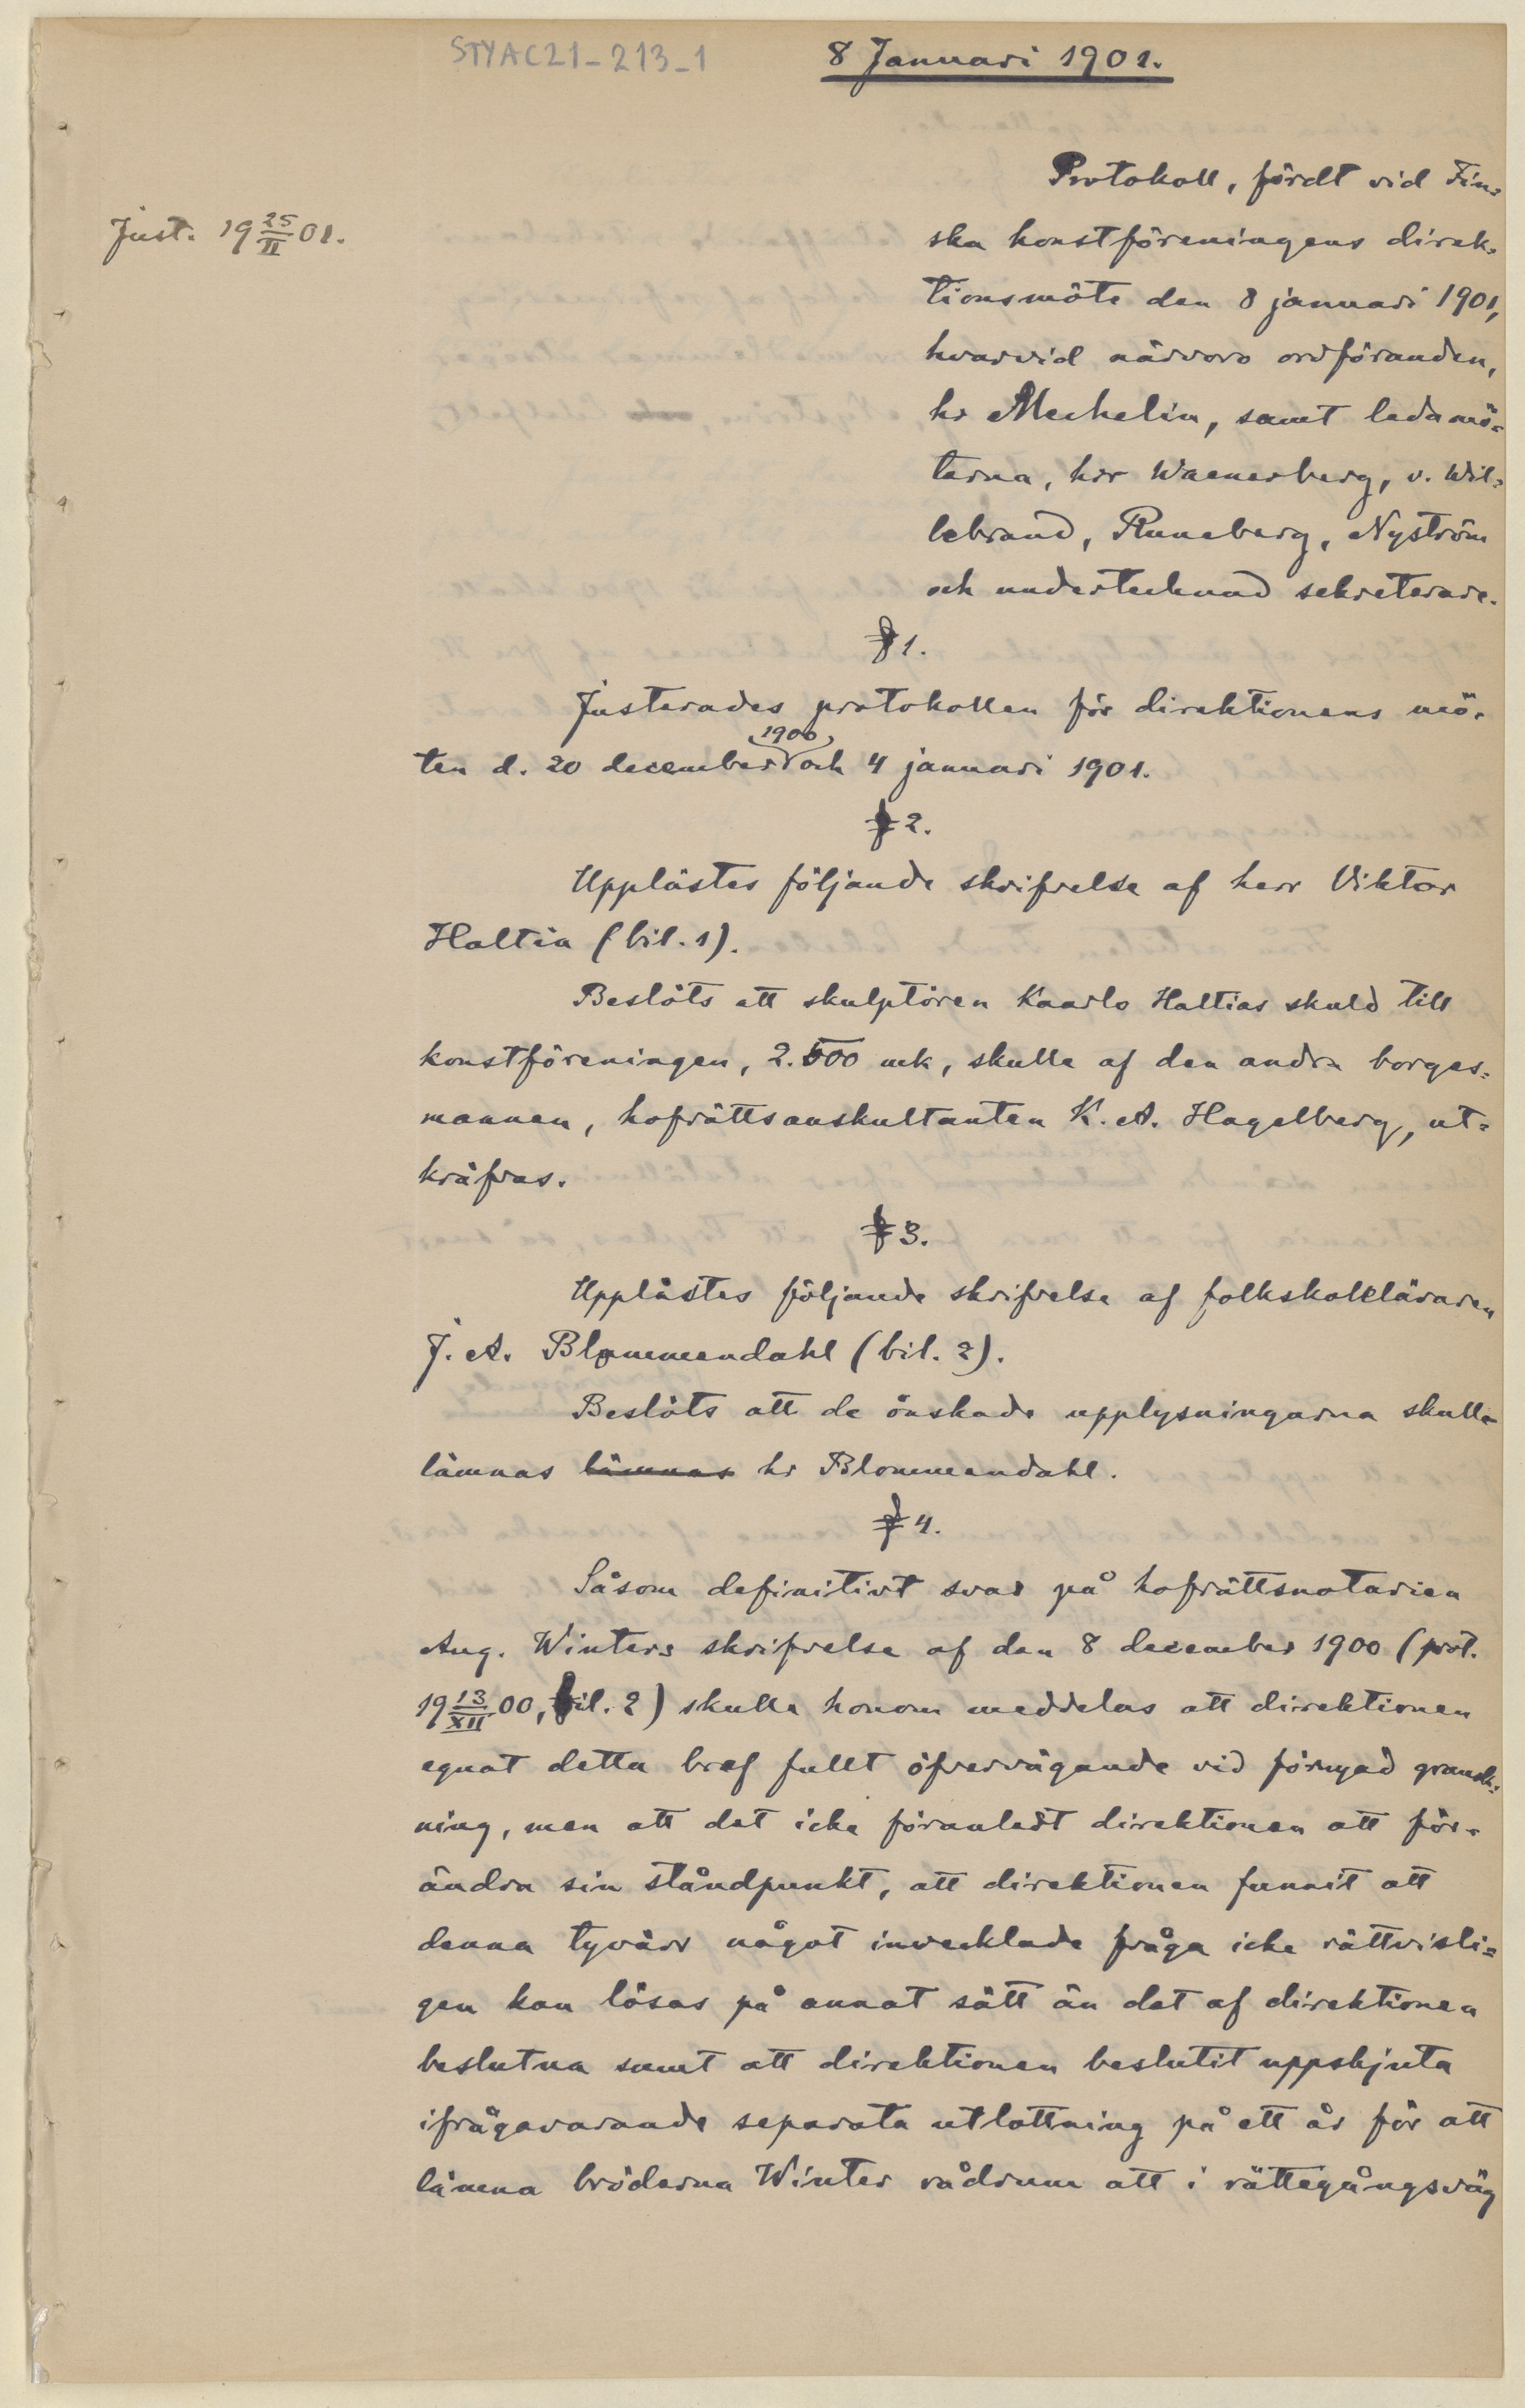 STYAC21-213-1
8 Januari 1901.
Just. 19 25/II 01.
Protokoll, fördt vid Fin-
ska konstföreningens direk-
tionsmöte den 8 januari 1901,
hvarvid närvoro ordföranden,
hr Mechelin, samt ledamö-
terna, hrr Waenerberg, v. Wil-
lebrand, Runeberg, Nyström
och undertecknad sekreterare.
§ 1.
Justerades protokollen för direktionens mö-
ten d. 20 december 1900 och 4 januari 1901.
§ 2.
Upplästes följande skrifvelse af herr Viktor
Haltia (bil. 1).
Beslöts att skulptören Kaarlo Haltias skuld till
konstföreningen, 2.500 mk, skulle af den andra borges-
mannen, hofrättsauskultanten K. A. Hagelberg, ut-
kräfvas.
§ 3.
Upplästes följande skrifvelse af folkskolläraren
J. A. Blommendahl (bil. 2).
Beslöts att de önskade upplysningarna skulle
lämnas lämnas hr Blommendahl.
§ 4.
Såsom definitivt svar på hofrättsnotarien
Aug. Winters skrifvelse af den 8 december 1900 (prot.
19 13/XII 00, bil. 2) skulle honom meddelas att direktionen
egnat detta bref fullt öfvervägande vid förnyad gransk-
ning, men att det icke föranledt direktionen att för-
ändra sin ståndpunkt, att direktionen funnit att
denna tyvärr något invecklade fråga icke rättvisli-
gen kan lösas på annat sätt än det af direktionen
beslutna samt att direktionen beslutit uppskjuta
ifrågavarande separata utlottning på ett år för att
lämna bröderna Winter rådrum att i rättegångsväg